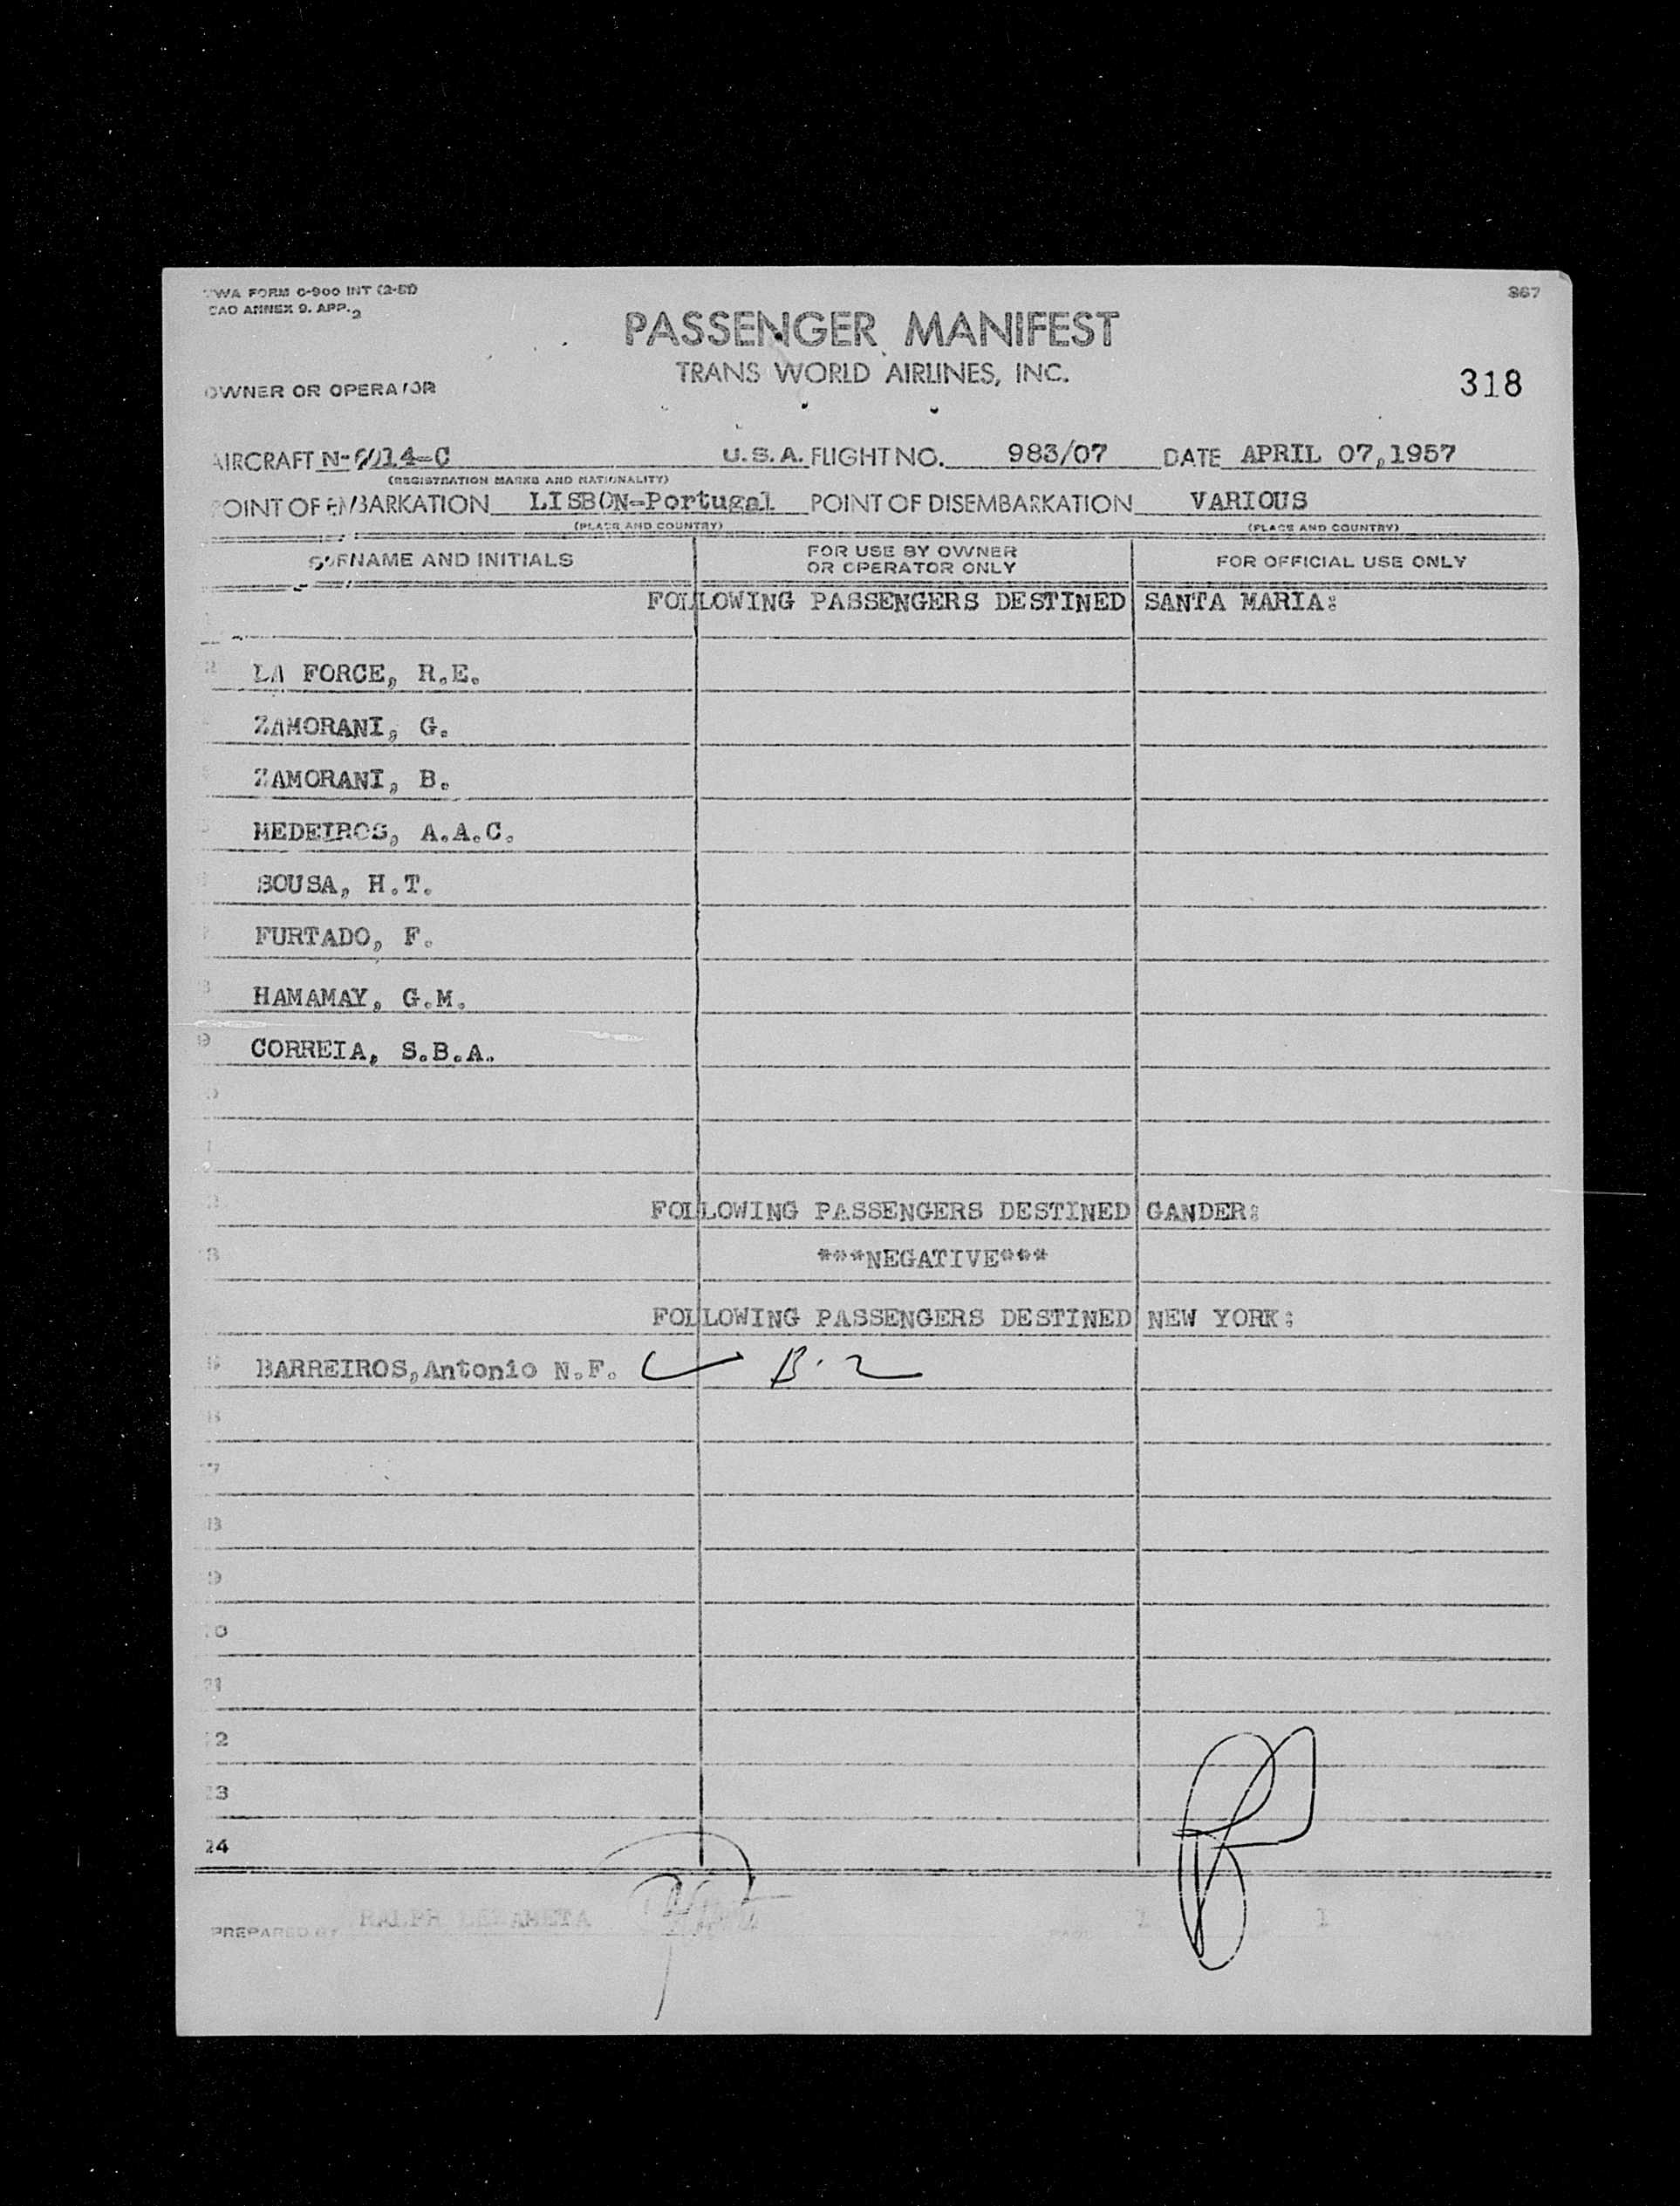 TWA FORM C-900 INT (2-51)
ICAO ANNEX 9. APP. 2
867
PASSENGER MANIFEST
TRANS WORLD AIRLINES, INC.
OWNER OR OPERATOR
318
AIRCRAFT N-6014-C U.S.A. FLIGHT NO. 983/07 DATE APRIL 07,1957
(REGISTRATION MARKS AND NATIONALITY)
POINT OF EMBARKATION LISBON-Portugal POINT OF DISEMBARKATION VARIOUS
(PLACE AND COUNTRY) (PLACE AND COUNTRY)
SURNAME AND INITIALS FOR USE BY OWNER OR OPERATOR ONLY FOR OFFICIAL USE ONLY
FOLLOWING PASSENGERS DESTINED SANTA MARIA:
2 LA FORCE, R.E.
ZAMORANI, G.
ZAMORANI, B.
MEDEIROS, A.A.C.
SOUSA, H.T.
FURTADO, F.
HAMAMAY, G.M.
9 CORREIA, S.B.A.
FOLLOWING PASSENGERS DESTINED GANDER:
***NEGATIVE***
FOLLOWING PASSENGERS DESTINED NEW YORK:
BARREIROS,Antonio N.F. B-2
21
24
PREPARED BY RALPH 1 1